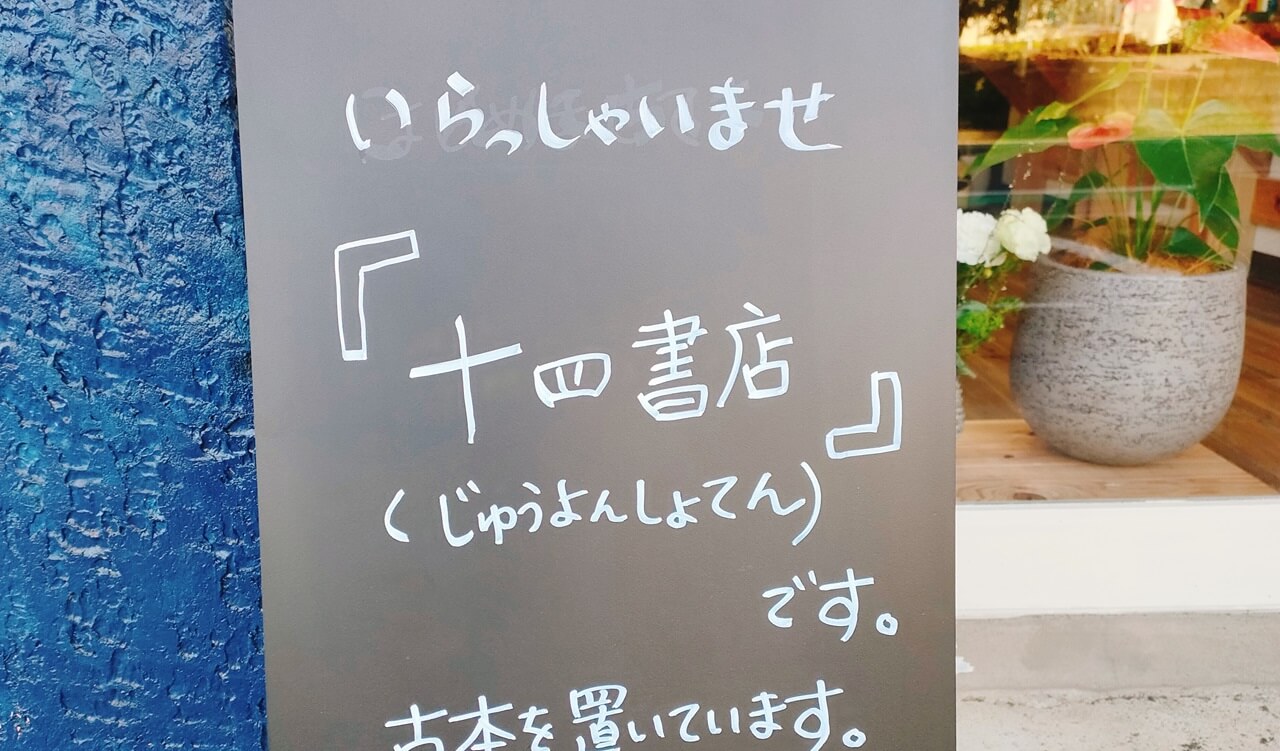 いらっしゃいませ
『十四書店』
(じゅうよんしょてん)
です。
古本を置いています。